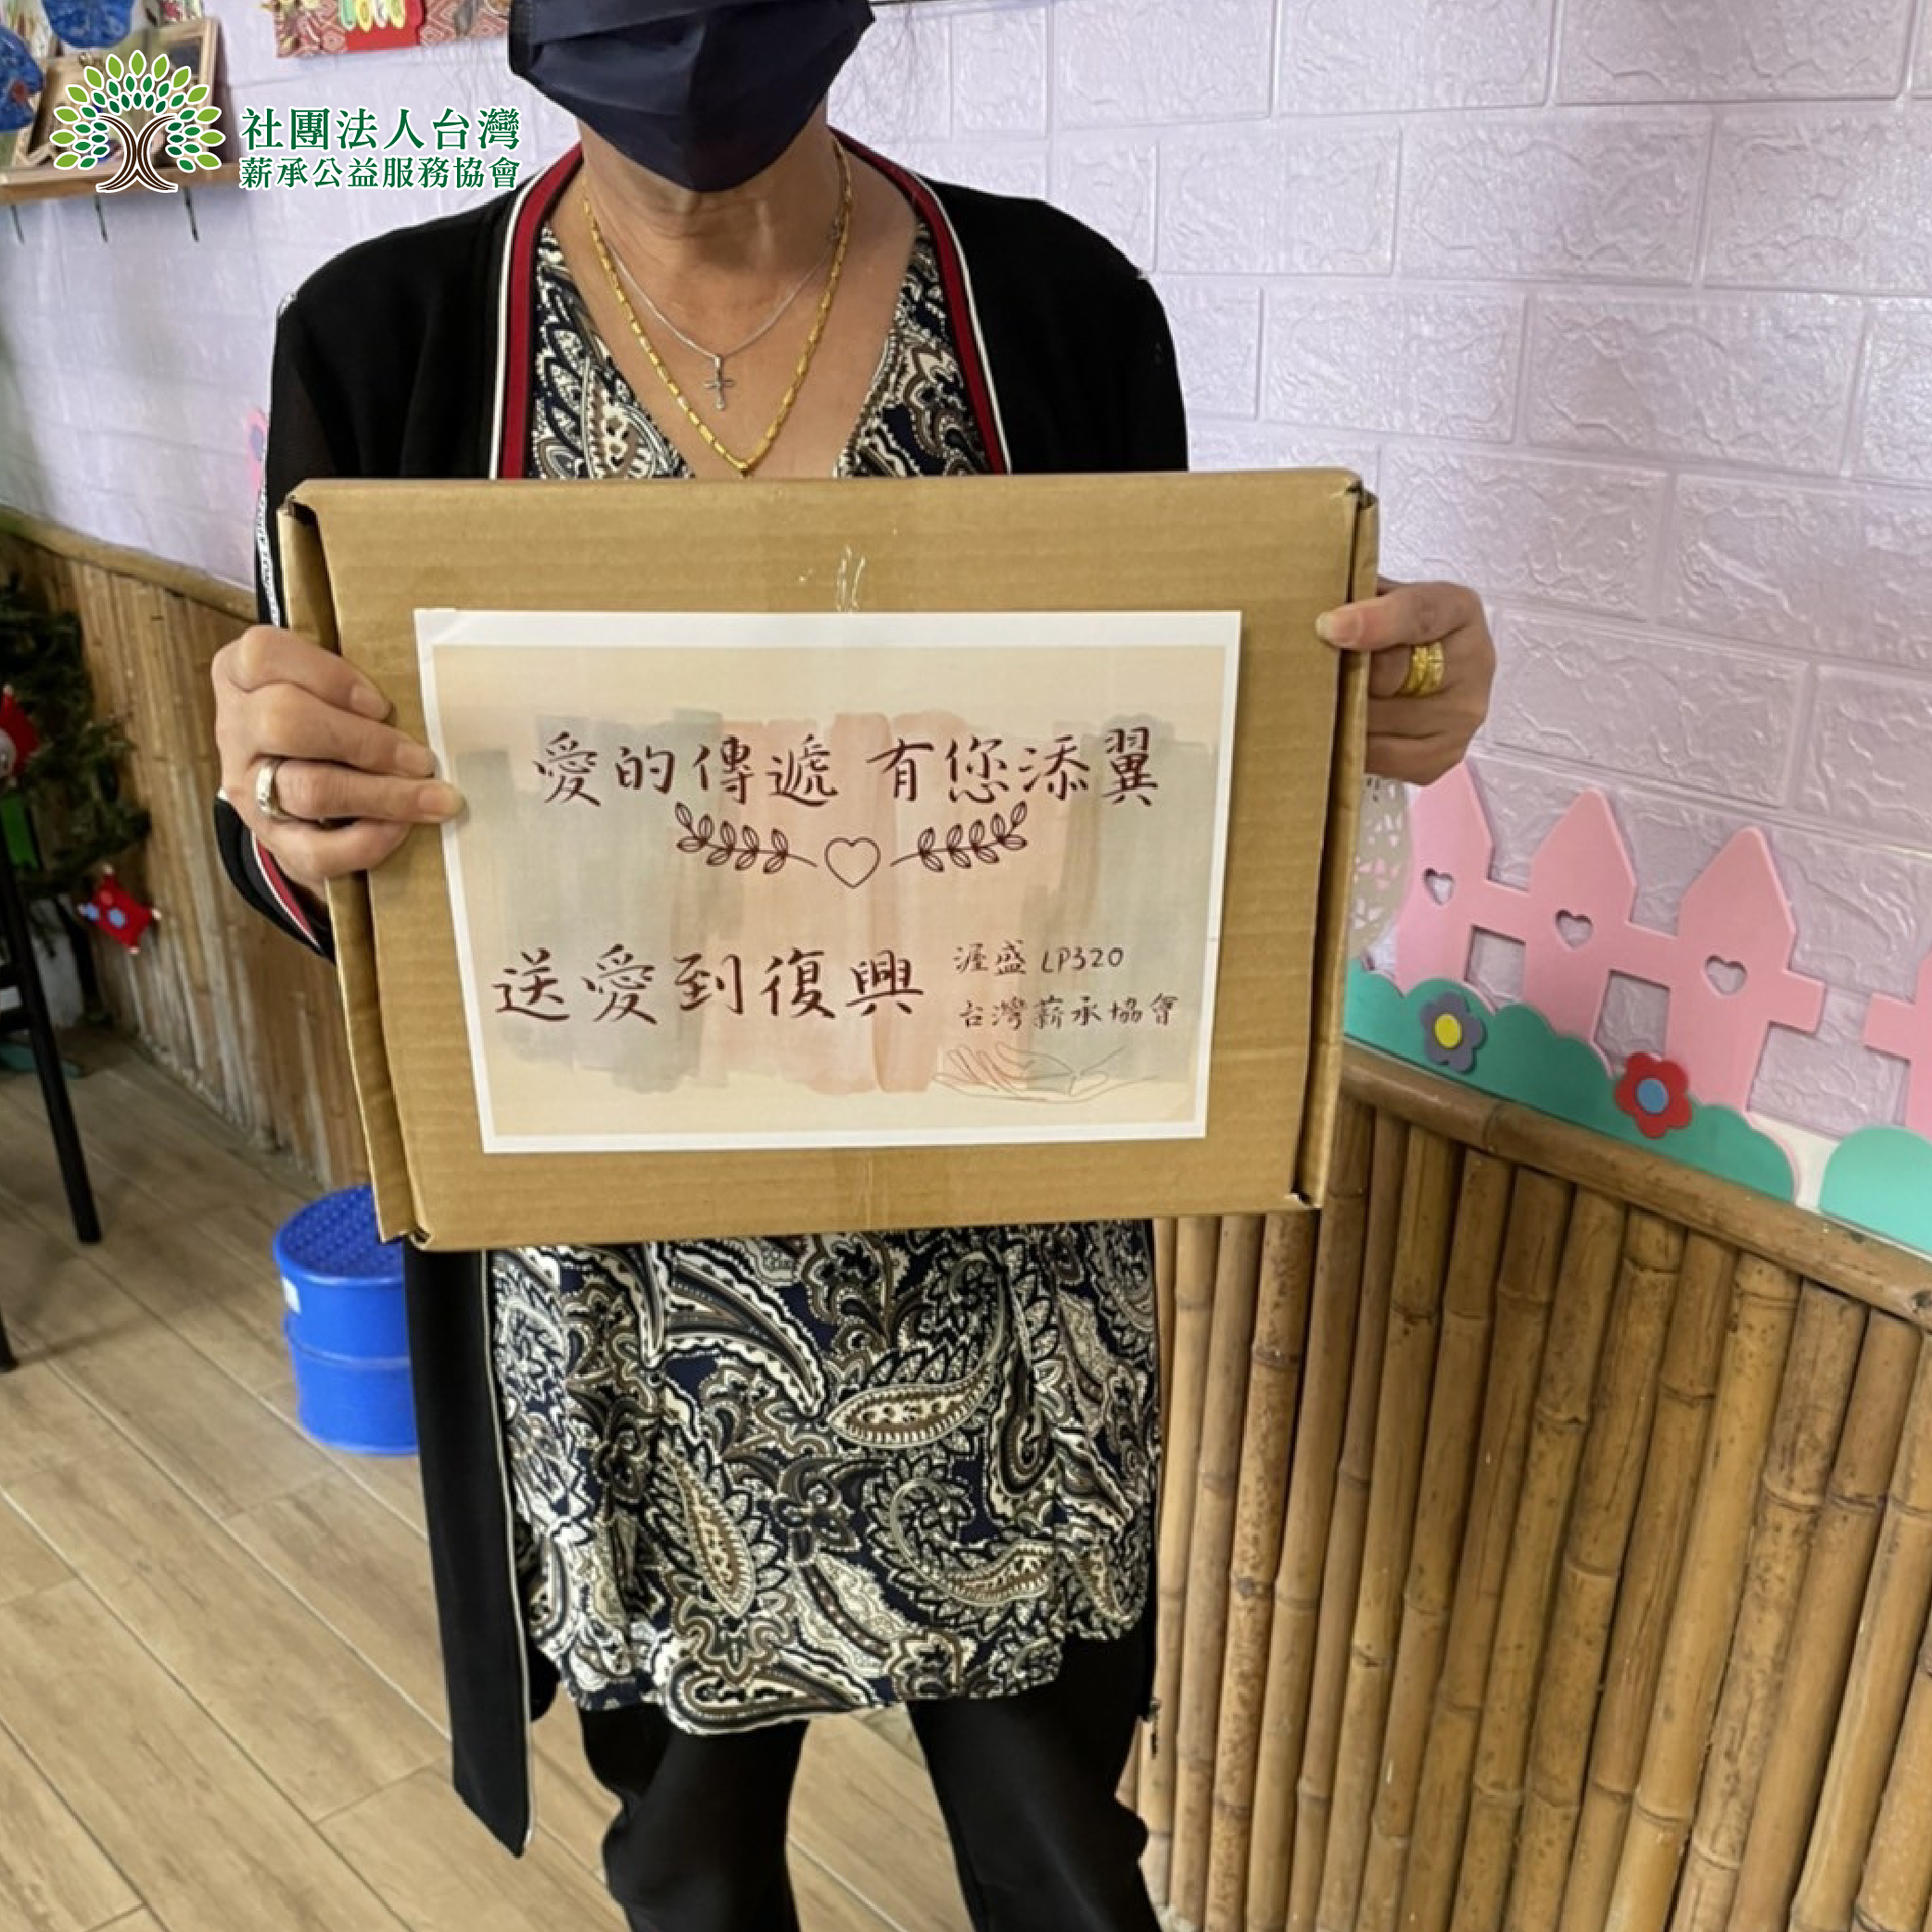 社團法人台灣
薪承公益服務協會
愛的傳遞 有您添翼
送愛到復興
渥盛 LP320
台灣薪承協會